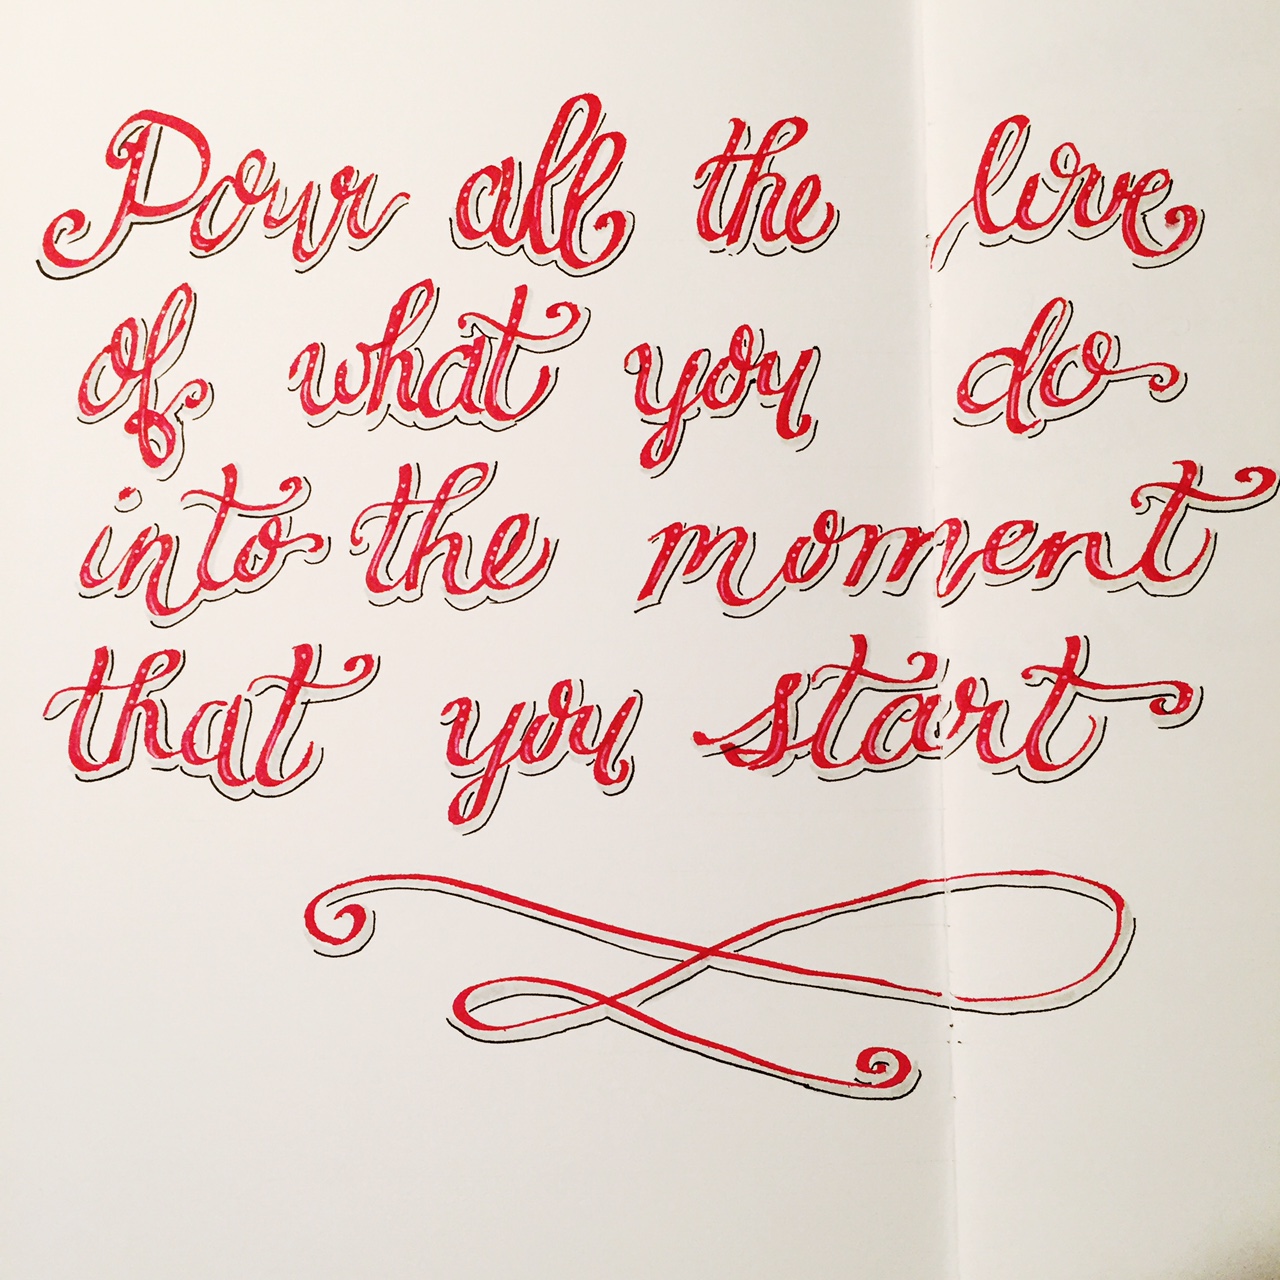 Pour all the love
of what you do
into the moment
that you start